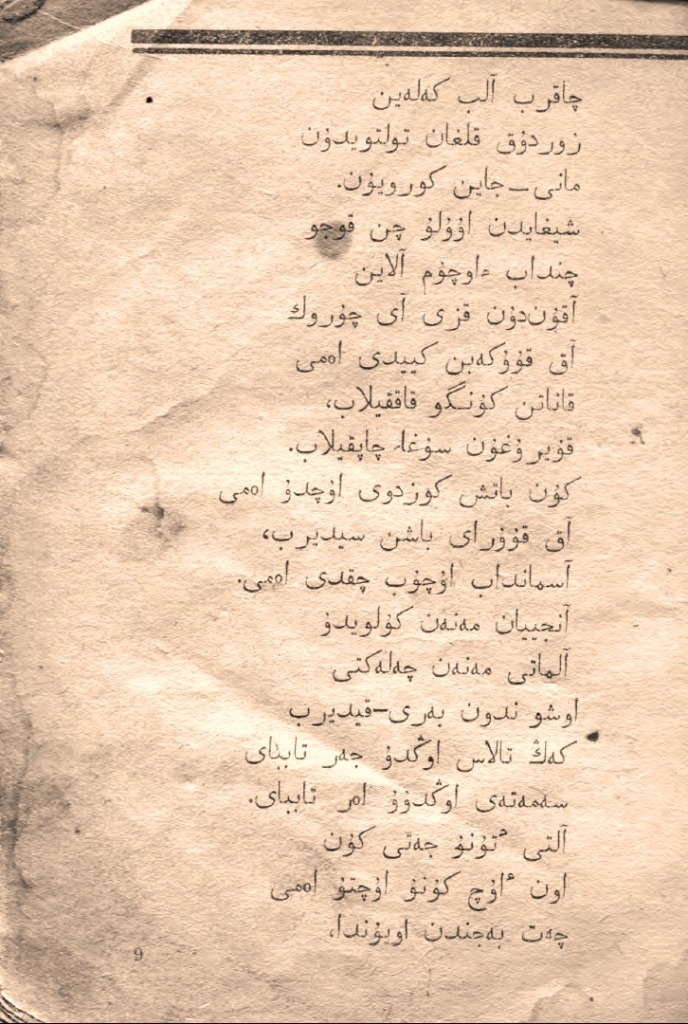 چاقرب آلب كەلەين
زوردۇق قلغان تولتويدۇن
مانى—جاين كورويۇن.
شيغايدن اۇۇلۇ چن قوجو
چنداب ٴاوچۇم آلاين
آقۇن‌دۇن قزى آى چۇروك
آق قۇۇكەبن كييدى اەمى
قاناتن كۇنگو قاققيلاب،
قۇيرۇغۇن سۇغا، چاپقيلاب.
كۇن باتش كوزدوى اۇچدۇ اەمى
آق قۇۇراى باشن سيديرب،
آسمانداب اۇچۇب چقدى اەمى.
آنجييان مەنەن كۇلويدۇ
آلماتى مەنەن چەلەكتى
اوشو ندون بەرى—قيديرب
كەڭ تالاس اوڭدۇ جەر تابباى
سەمەتەى اوڭدۇۇ اەر تابباى.
آلتى ٴتۇنۇ جەتى كۇن
اون ٴاۇچ كۇنۇ اۇچتۇ اەمى
چەت بەجندن اويۇندا،
9